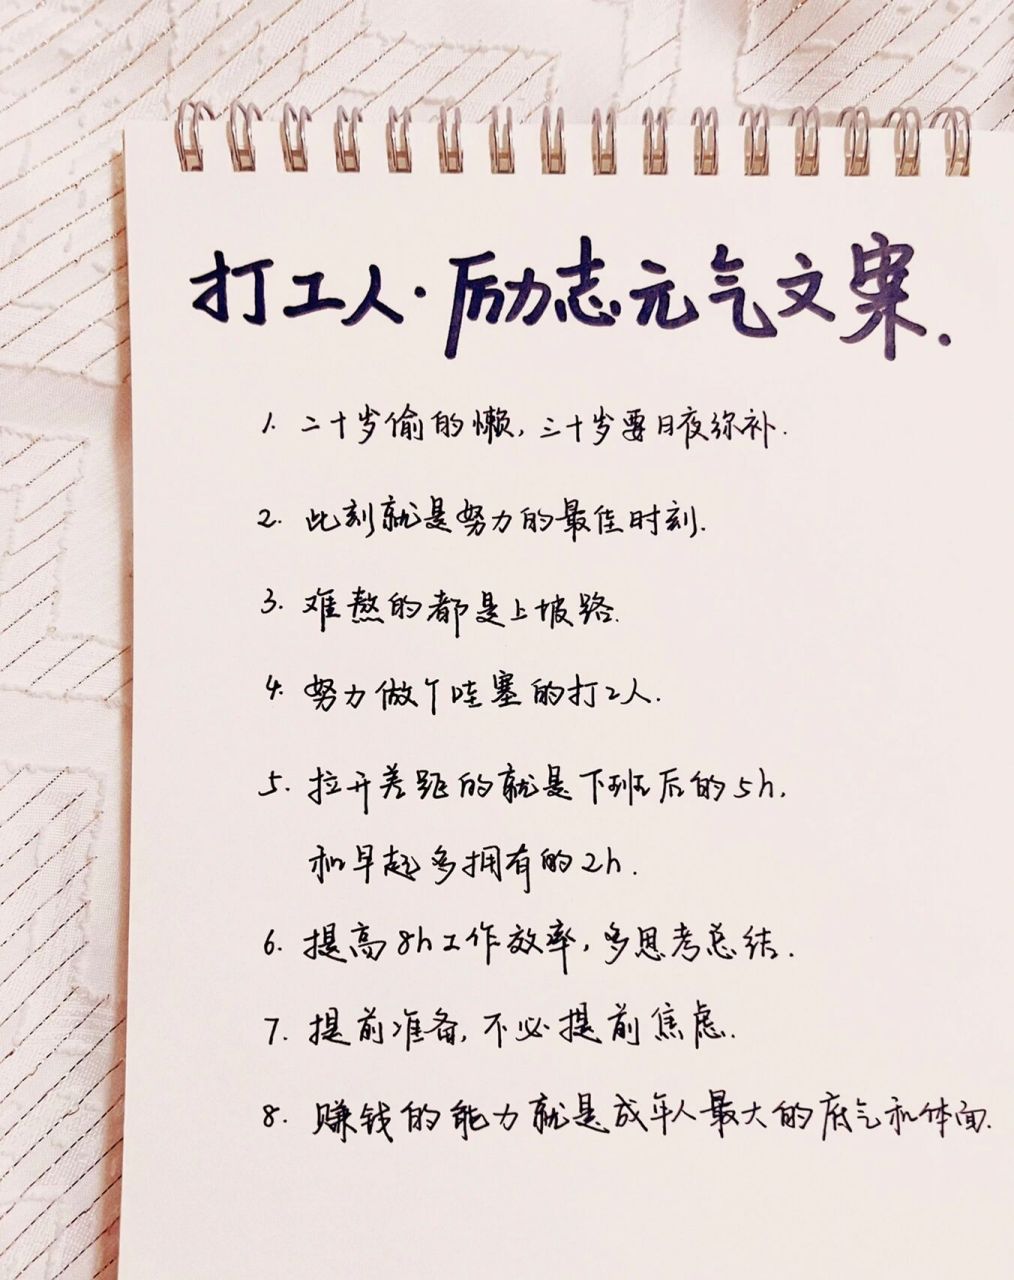 打工人·励志元气文案.
1. 二十岁偷的懒,三十岁要日夜弥补.
2. 此刻就是努力的最佳时刻.
3. 难熬的都是上坡路.
4. 努力做个哇塞的打工人.
5. 拉开差距的就是下班后的5h,
和早起多拥有的2h.
6. 提高8h工作效率,多思考总结.
7. 提前准备,不必提前焦虑.
8. 赚钱的能力就是成年人最大的底气和体面.